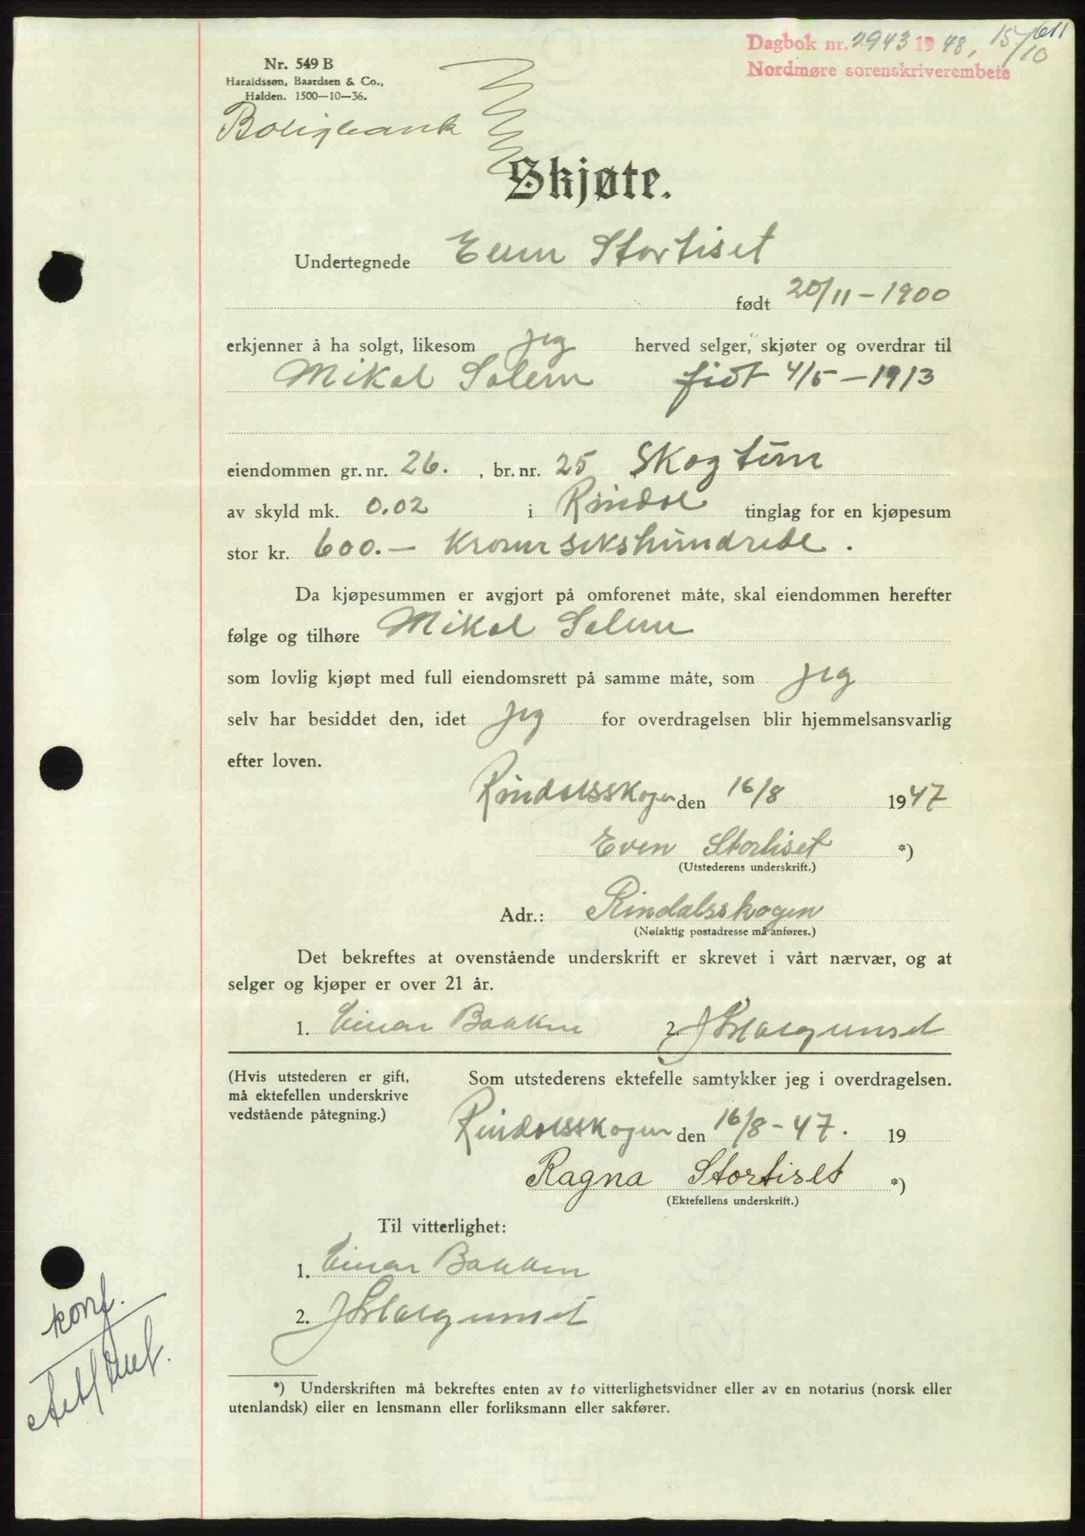 Dagbok nr. 2943 1948, 15/10
611
Nordmøre sorenskriverembete
Nr. 549 B
Haraldssøn, Baardsen & Co.,
Halden. 1500—10—36.
Boligbank
Skjøte.
Undertegnede Even Stortiset
født 20/11 - 1900
erkjenner å ha solgt, likesom jeg herved selger, skjøter og overdrar til
Mikal Solem født 4/5 - 1913
eiendommen gr. nr. 26. , br. nr. 25 Skogtun
av skyld mk. 0.02 i Rindal tinglag for en kjøpesum
stor kr. 600.- Kroner sekshundrede .
Da kjøpesummen er avgjort på omforenet måte, skal eiendommen herefter
følge og tilhøre Mikal Solem
som lovlig kjøpt med full eiendomsrett på samme måte, som jeg
selv har besiddet den, idet jeg for overdragelsen blir hjemmelsansvarlig
efter loven.
Rindalsskogen den 16/8 1947
Even Stortiset *)
(Utstederens underskrift.)
Adr.: Rindalsskogen
(Nøiaktig postadresse må anføres.)
Det bekreftes at ovenstående underskrift er skrevet i vårt nærvær, og at
selger og kjøper er over 21 år.
1. Einar Bakken 2.
(Hvis utstederen er gift,
må ektefellen underskrive
vedstående påtegning.)
Som utstederens ektefelle samtykker jeg i overdragelsen.
Rindalsskogen den 16/8 - 47. 19
Ragna Stortiset *)
(Ektefellens underskrift.)
Til vitterlighet:
1. Einar Bakken
2.
konf.
*) Underskriften må bekreftes enten av to vitterlighetsvidner eller av en notarius (norsk eller
utenlandsk) eller en lensmann eller forliksmann eller sakfører.